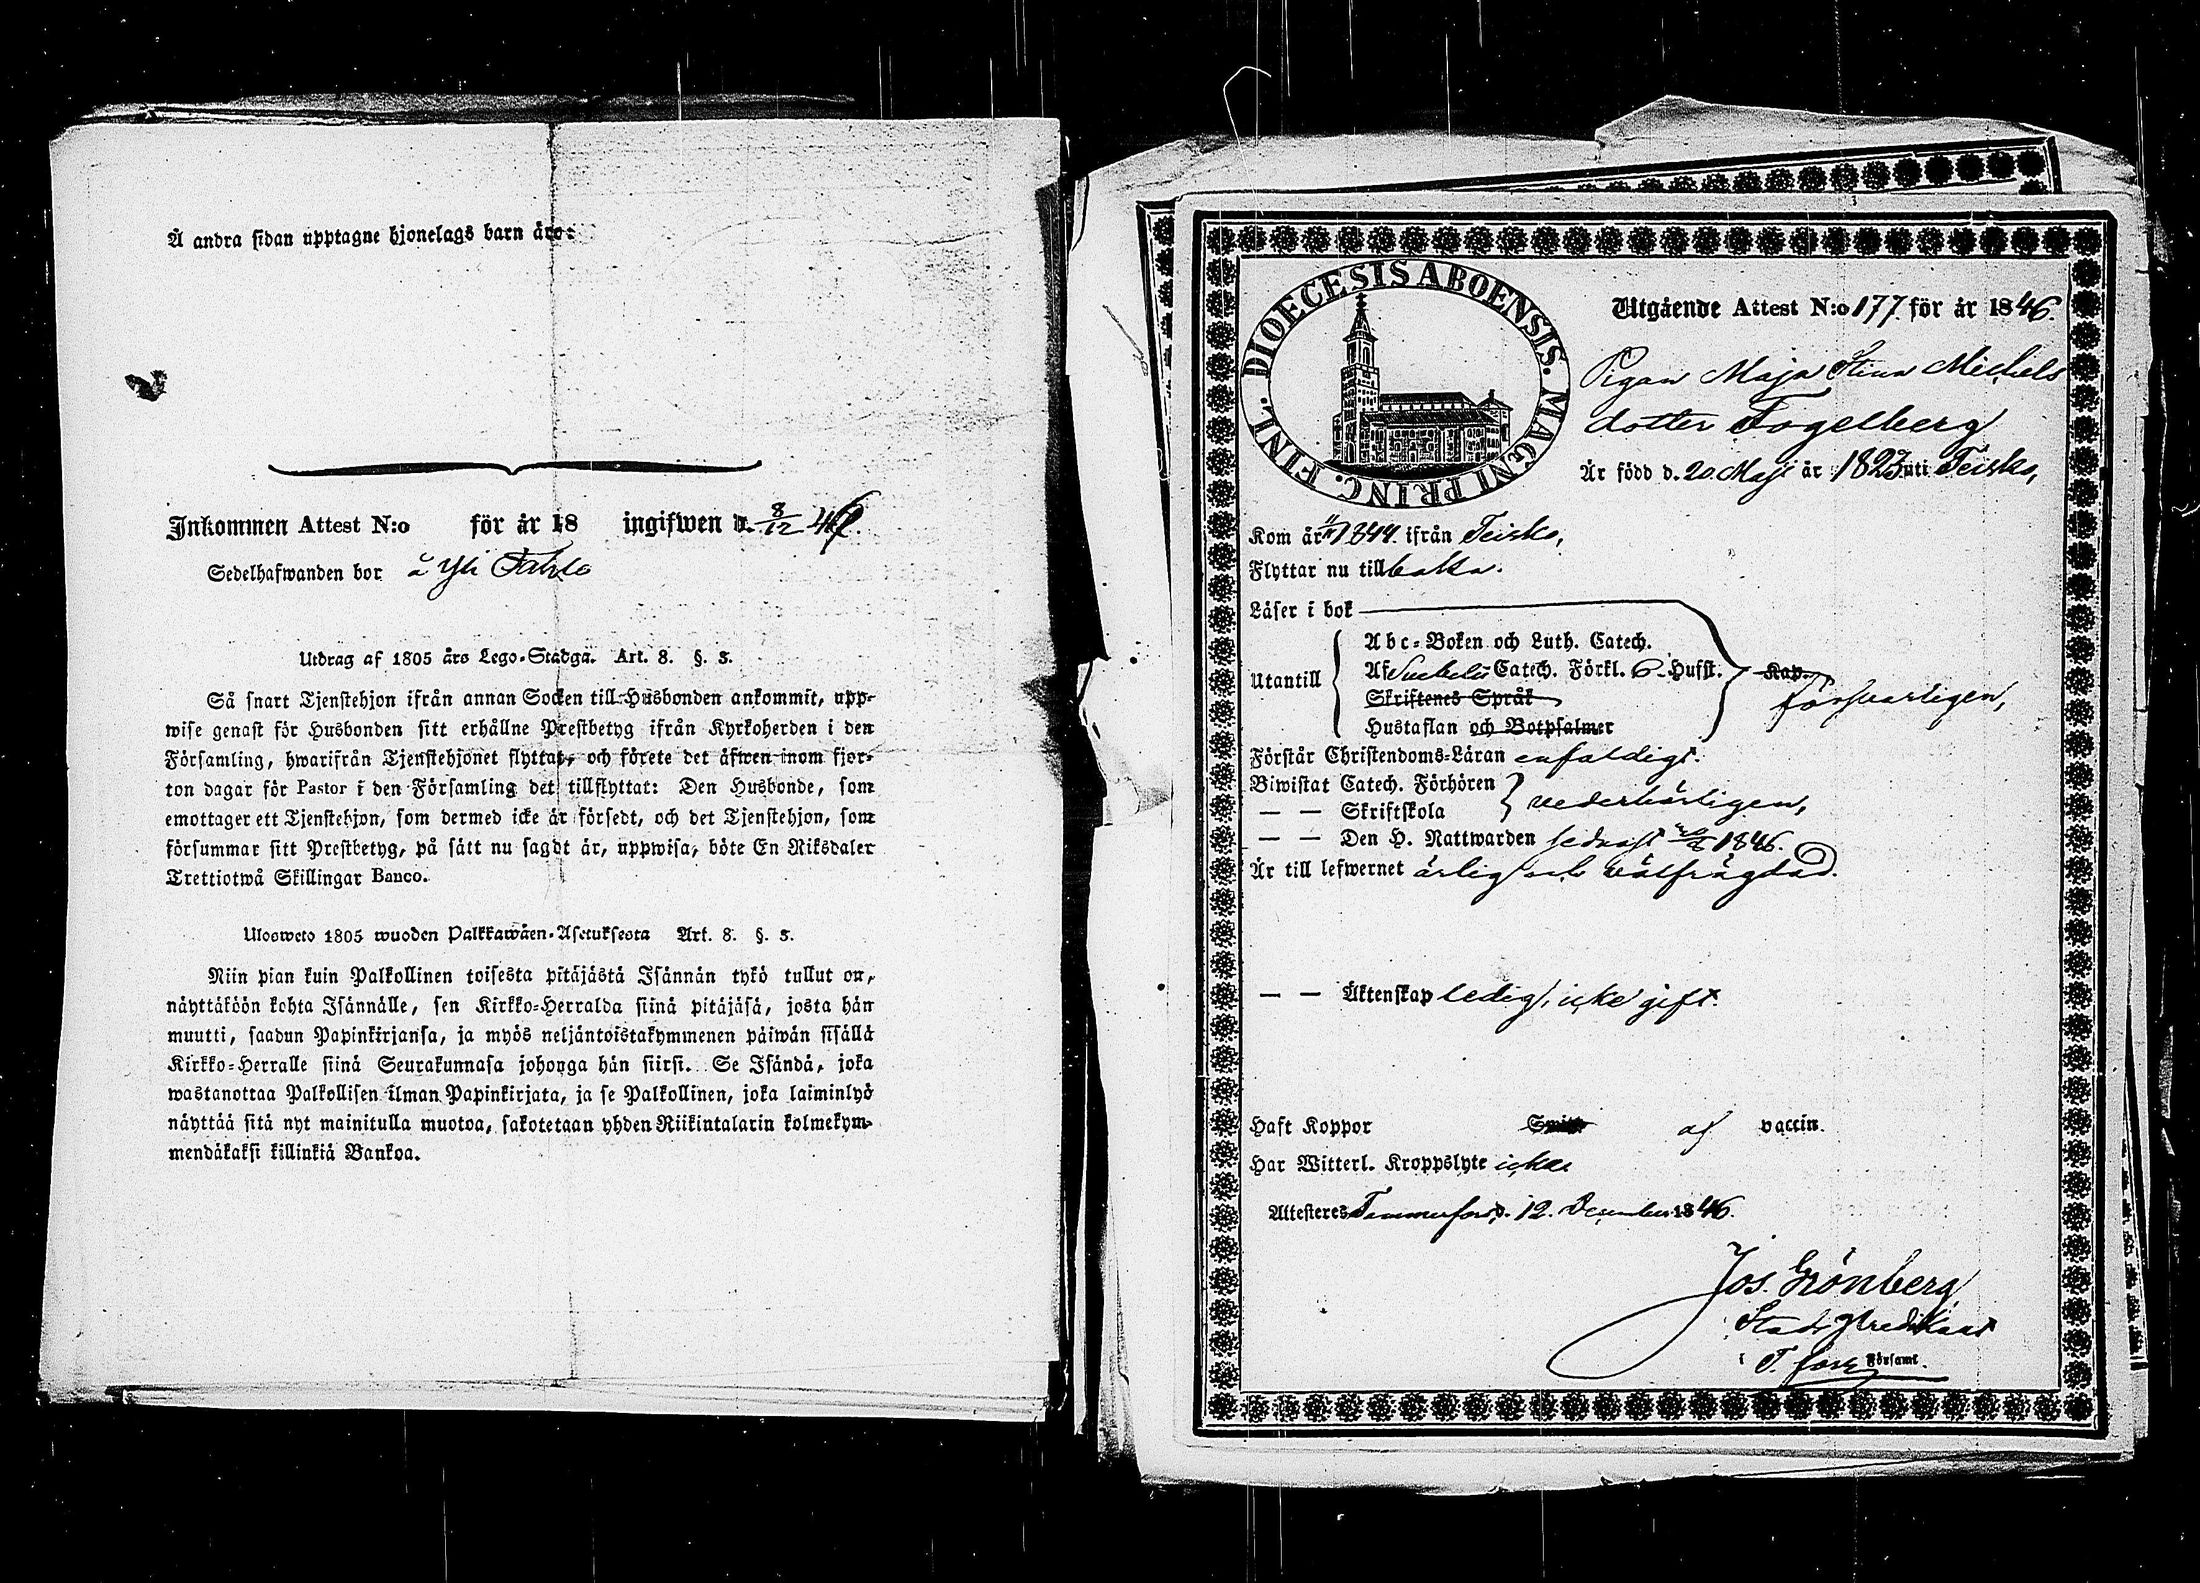 Å andra sidan upptagne hjonelags barn äro:
Inkommen Attest N:o för år 18 ingifwen d. 8/12 46.
Sedelhafwanden bor å Yli
Utdrag af 1805 års Lego-Stadga. Art. 8. §. 3.
Så snart Tjenstehjon ifrån annan Socken till Husbonden ankommit, upp-
wise genast för Husbonden sitt erhållne Prestbetyg ifrån Kyrkoherden i den
Församling, hwarifrån Tjenstehjonet flyttat, och förete det äfwen inom fjor-
ton dagar för Pastor i den Församling det tillflyttat: Den Husbonde, som
emottager ett Tjenstehjon, som dermed icke är försedt, och det Tjenstehjon, som
försummar sitt Prestbetyg, på sätt nu sagdt är, uppwisa, böte En Riksdaler
Trettiotwå Skillingar Banco.
Ulosweto 1805 wuoden Palkkawäen-Asetuksesta Art. 8. §. 3.
Niin pian kuin Palkollinen toisesta pitäjästä Isännän tykö tullut on,
näyttäköön kohta Isännälle, sen Kirkko-Herralda siinä pitäjäsä, josta hän
muutti, saadun Papinkirjansa, ja myös neljäntoistakymmenen päiwän sisällä
Kirkko-Herralle siinä Seurakunnasa johonga hän siirsi. Se Isändä, joka
wastanottaa Palkollisen ilman Papinkirjata, ja se Palkollinen, joka laiminlyö
näyttää sitä nyt mainitulla muotoa, sakotetaan yhden Riikintalarin kolmekym-
mendäkaksi killinkiä Bankoa.
DIOECESIS ABOENSIS. MAGNI PRINC. FINL.
Utgående Attest N:o 177. för år 1846.
Pigan Maja Stina Michels
dotter Fogelberg
Är född d. 20 Maji år 1823 uti Teisko,
Kom år 1844. ifrån Teisko,
Flyttar nu tillbaka.
Läser i bok
Abc-Boken och Luth. Catech.
Utantill Af Svebelii Catech. Förkl. 6 Hufst. Kap.
Skriftenes Språk försvarligen,
Hustaflan och Botpsalmer
Förstår Christendoms-Läran enfaldigt.
Biwistat Catech. Förhören
— — Skriftskola vederbörligen,
— — Den H. Nattwarden sednast 1846.
Är till lefwernet ärlig och välfrägdad.
— — Äktenskap ledig, icke gift.
Haft Koppor Smitt af vaccin.
Har Witterl. Kroppslyte icke
Attesteres Tammerfors d. 12. December 1846.
Jos. Grönberg
Stads Predikant
i T.fors Församl.